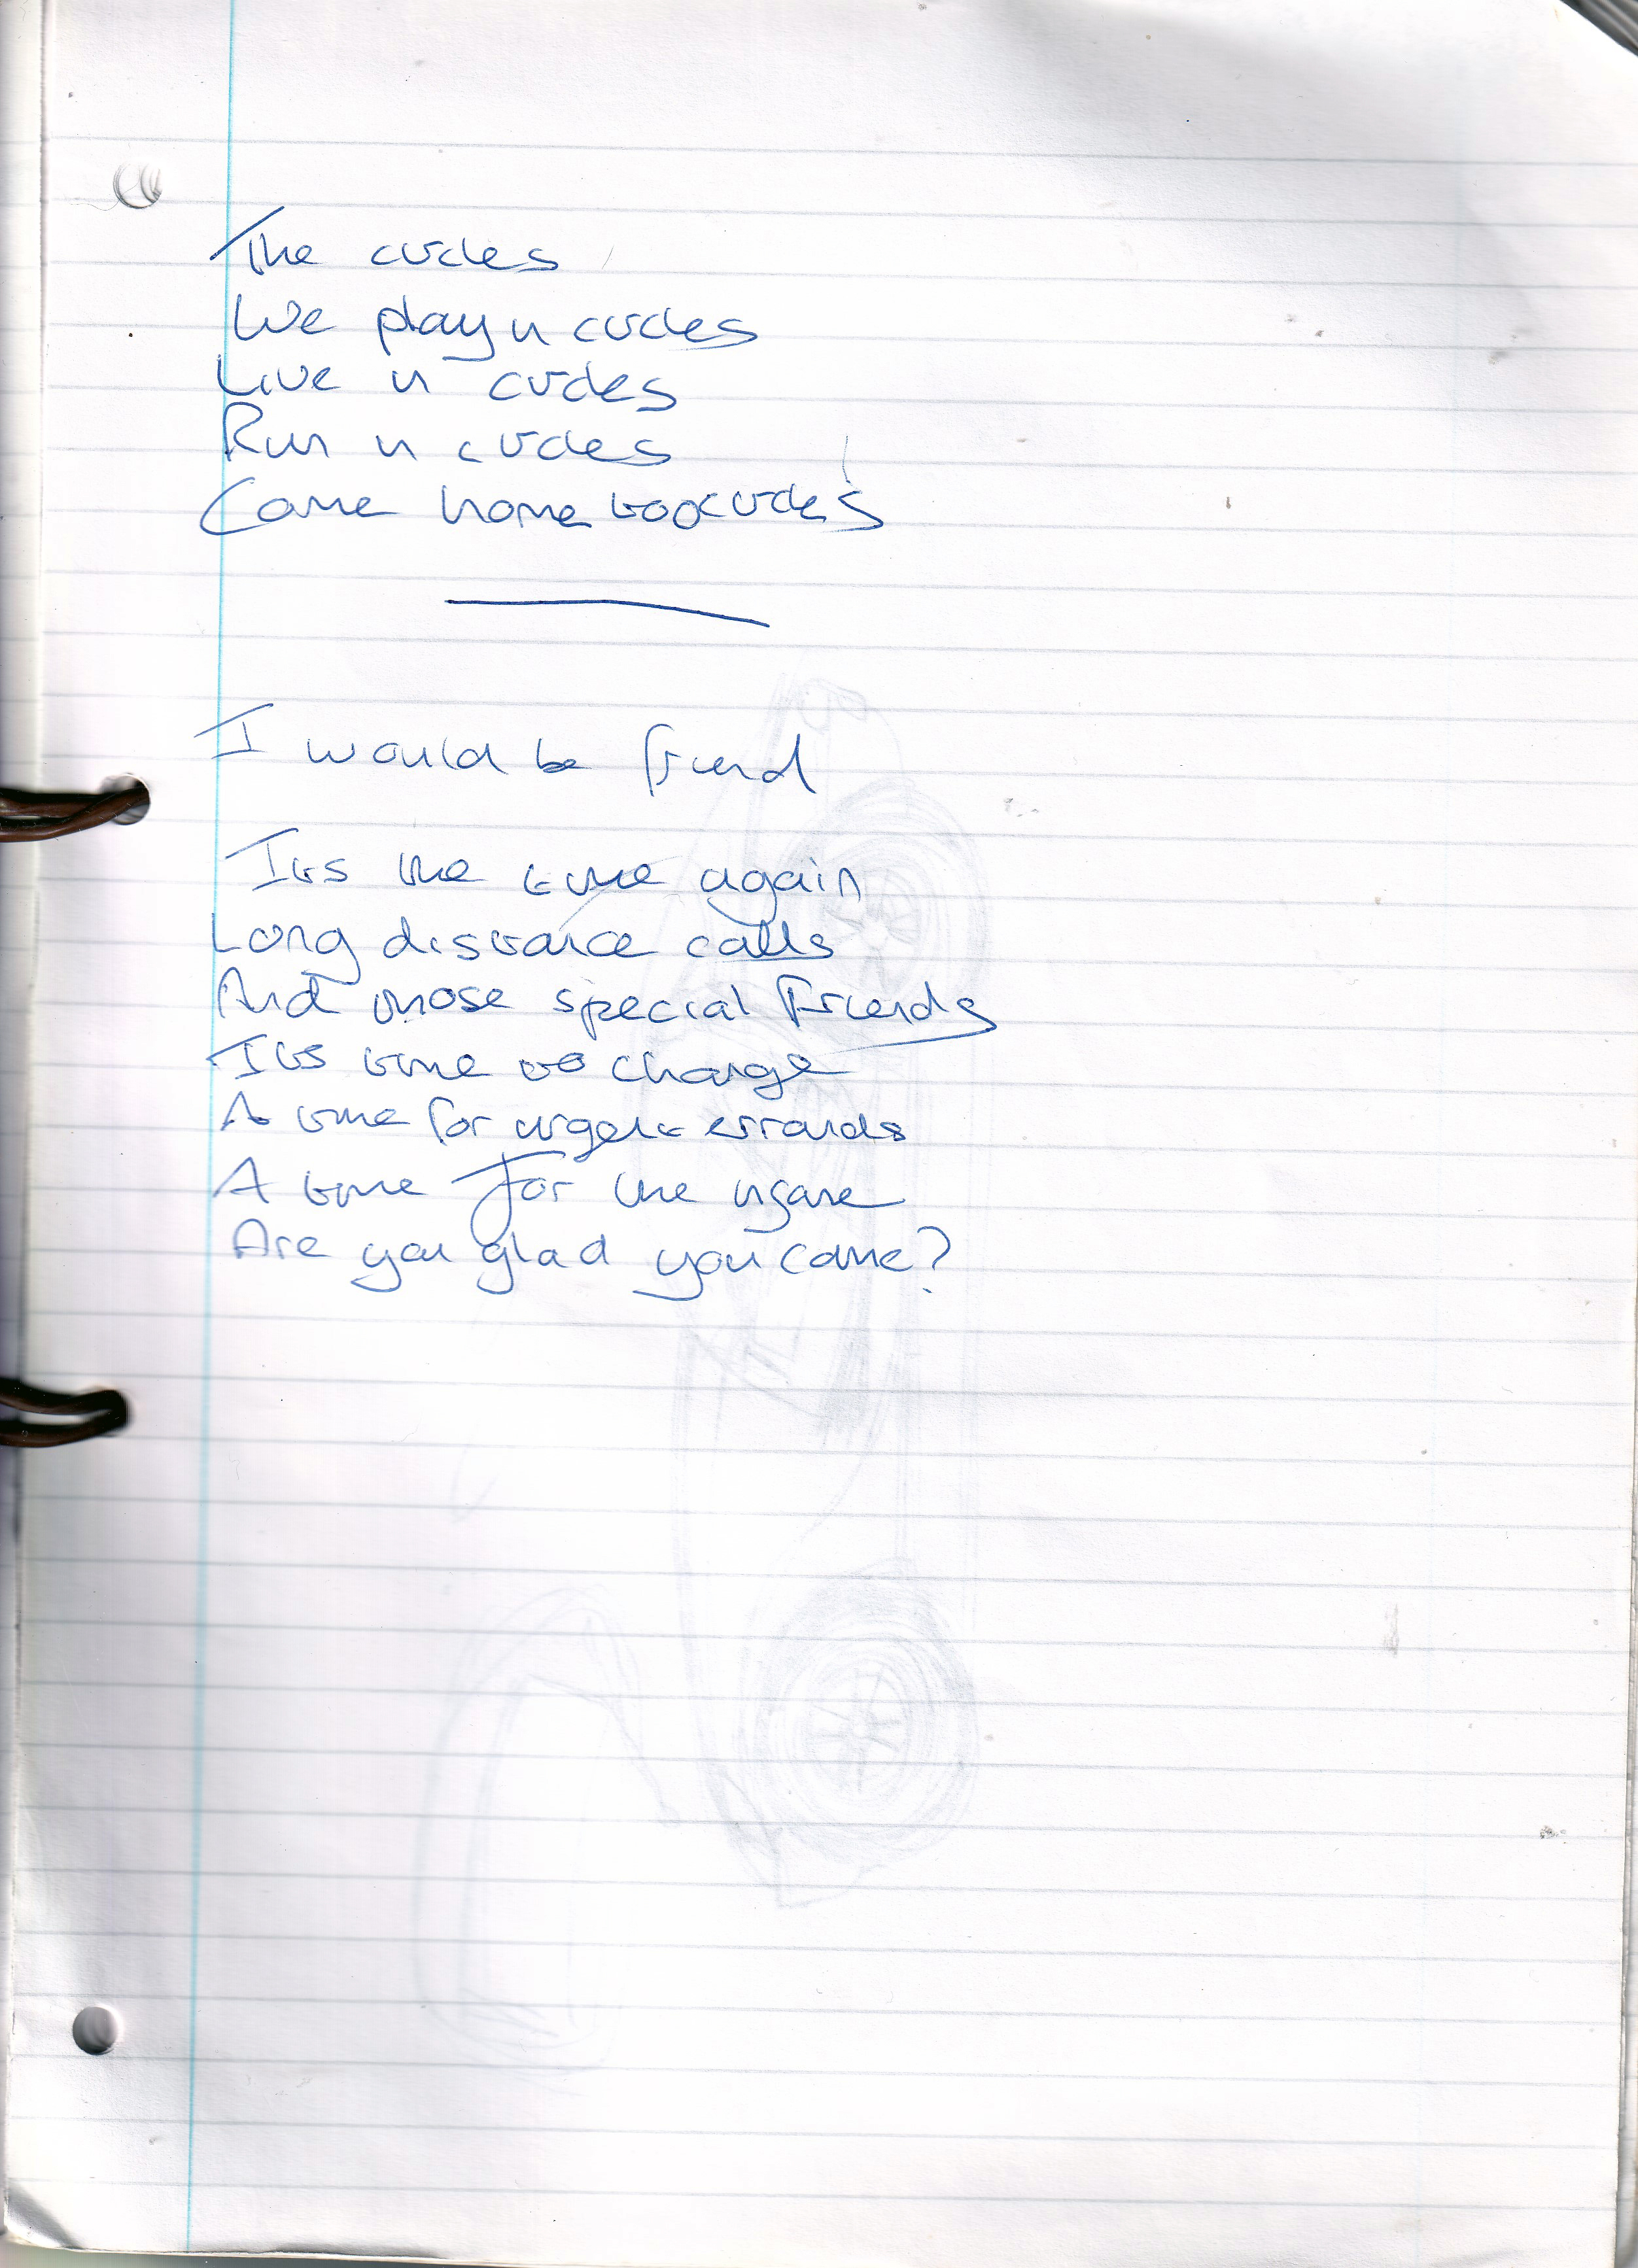 The circles
We play in circles
Live in circles
Run in circles
Come home to circles
I would be friend
Its the time again
Long distance calls
And those special friends
Its time to change
A time for urgent errands
A time for the insane
Are you glad you came?